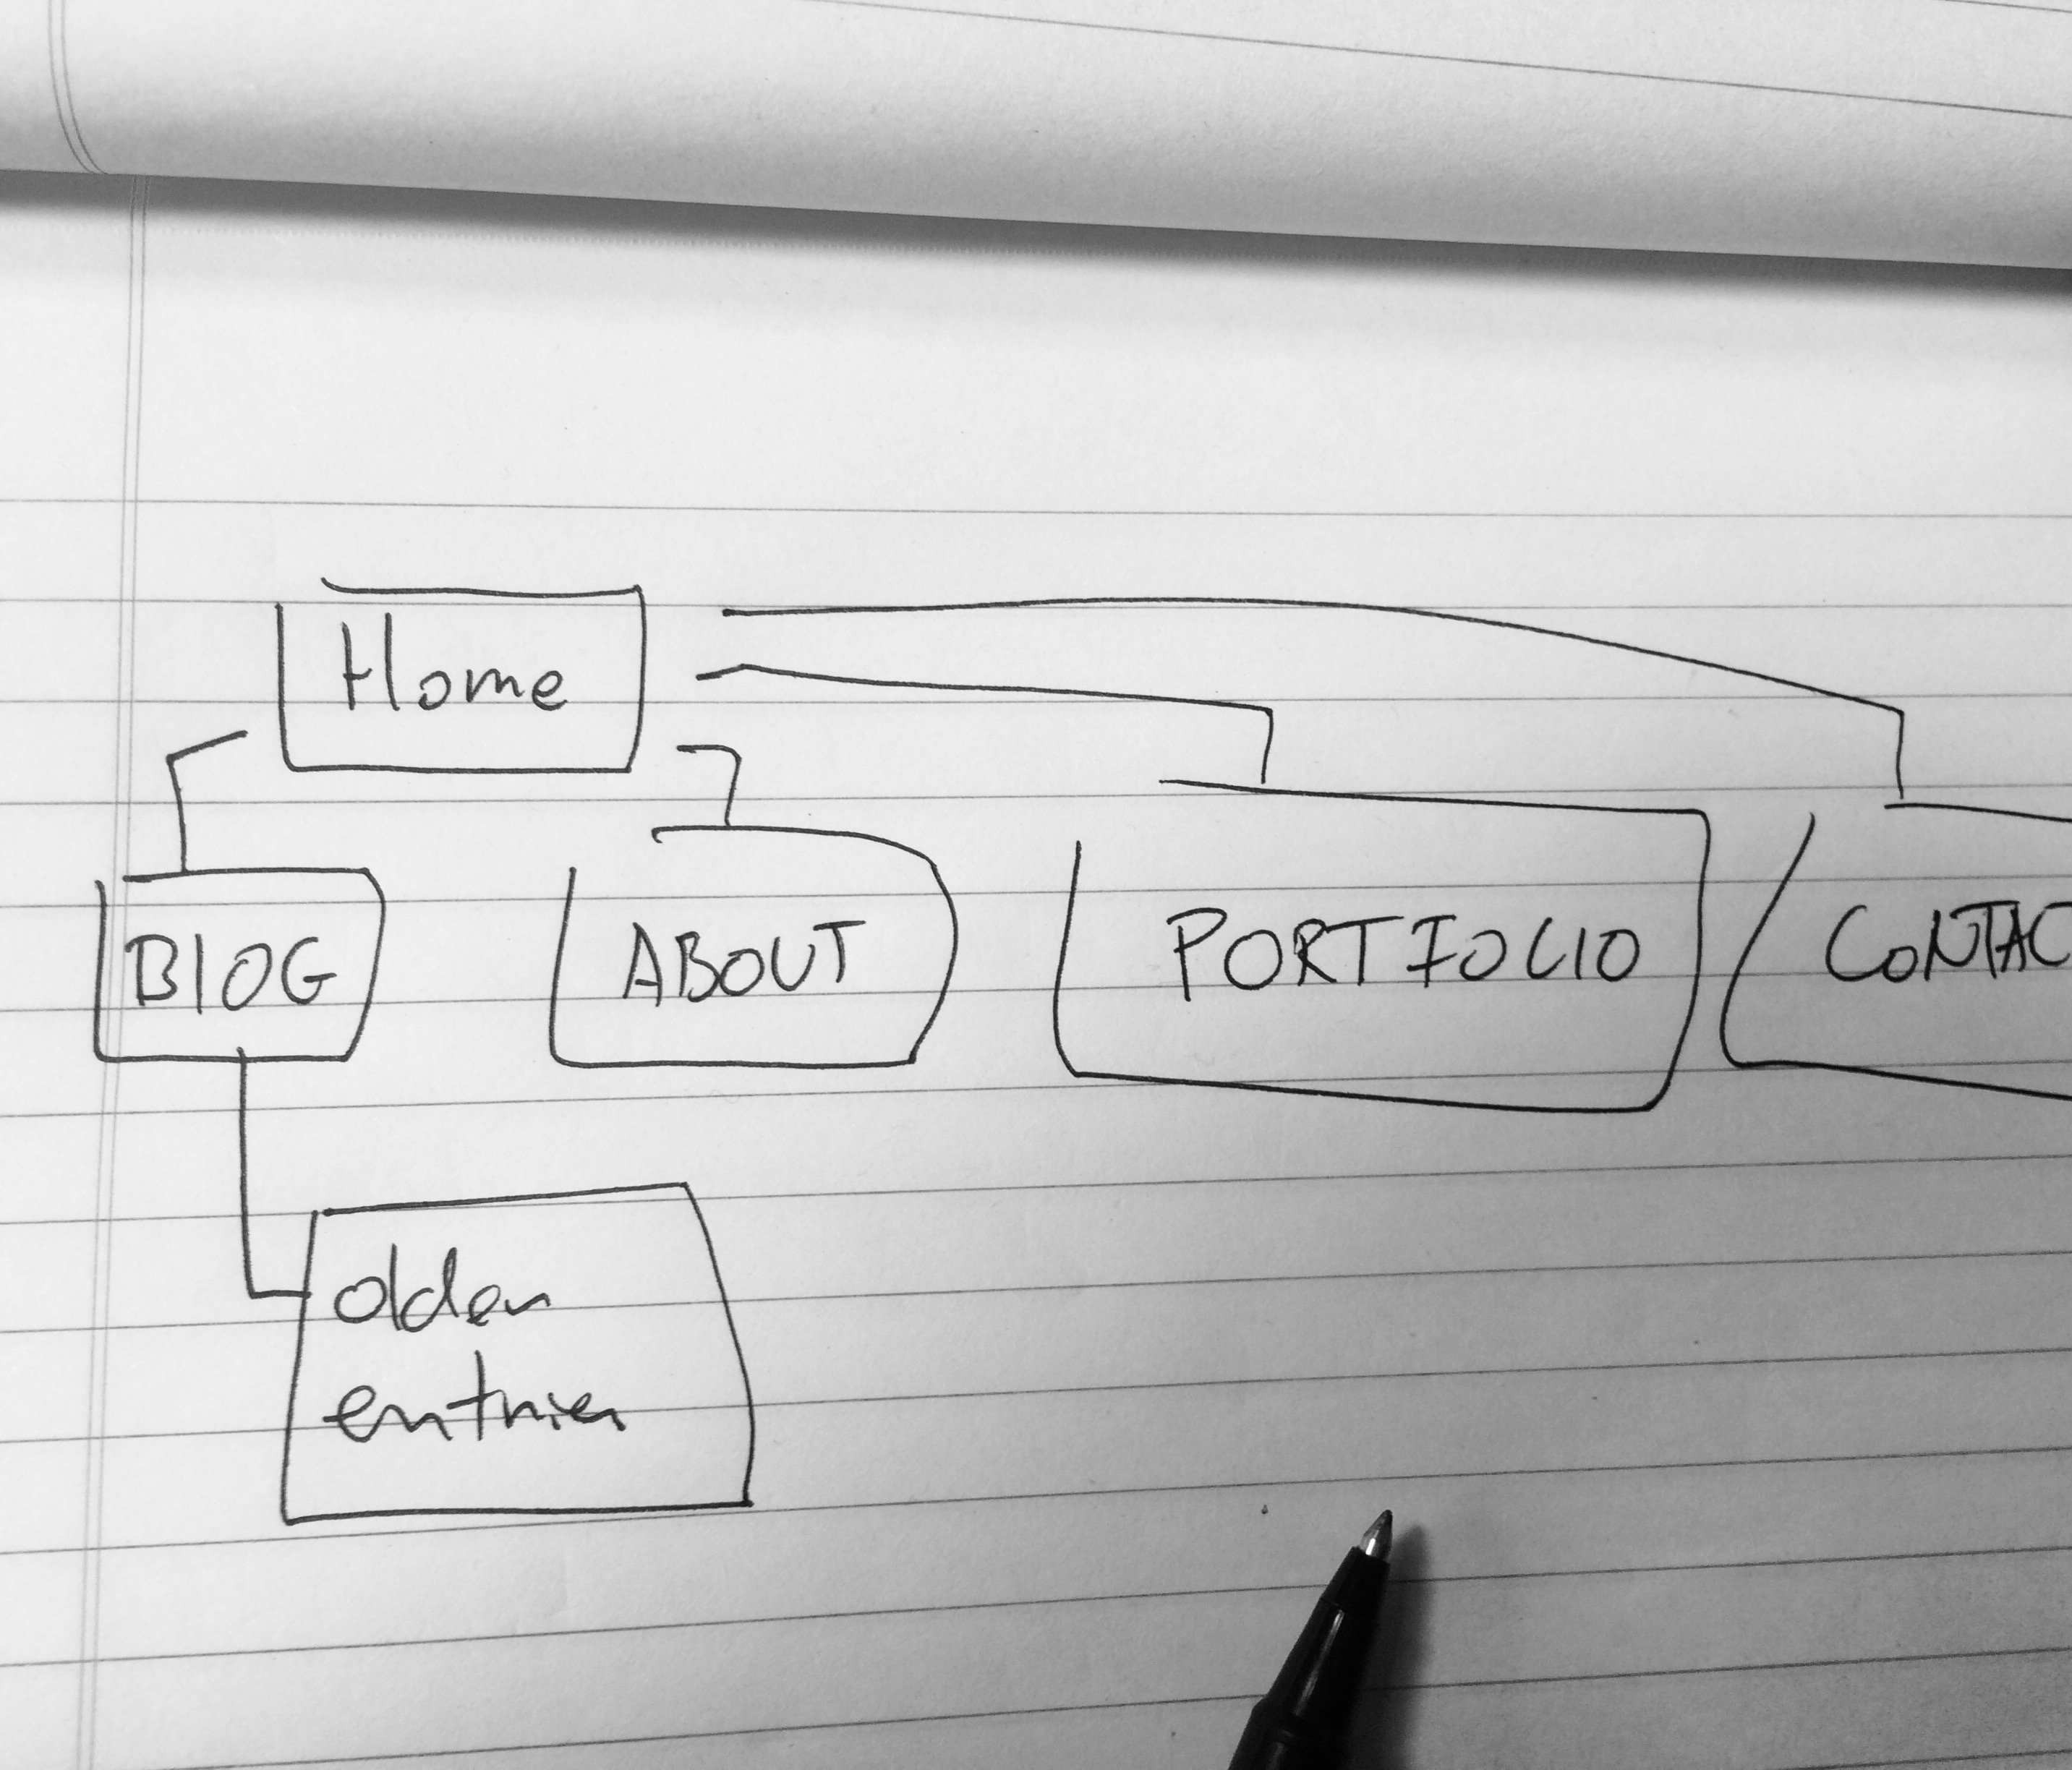 Home
BLOG
ABOUT
PORTFOLIO
CONTAC
older
entries